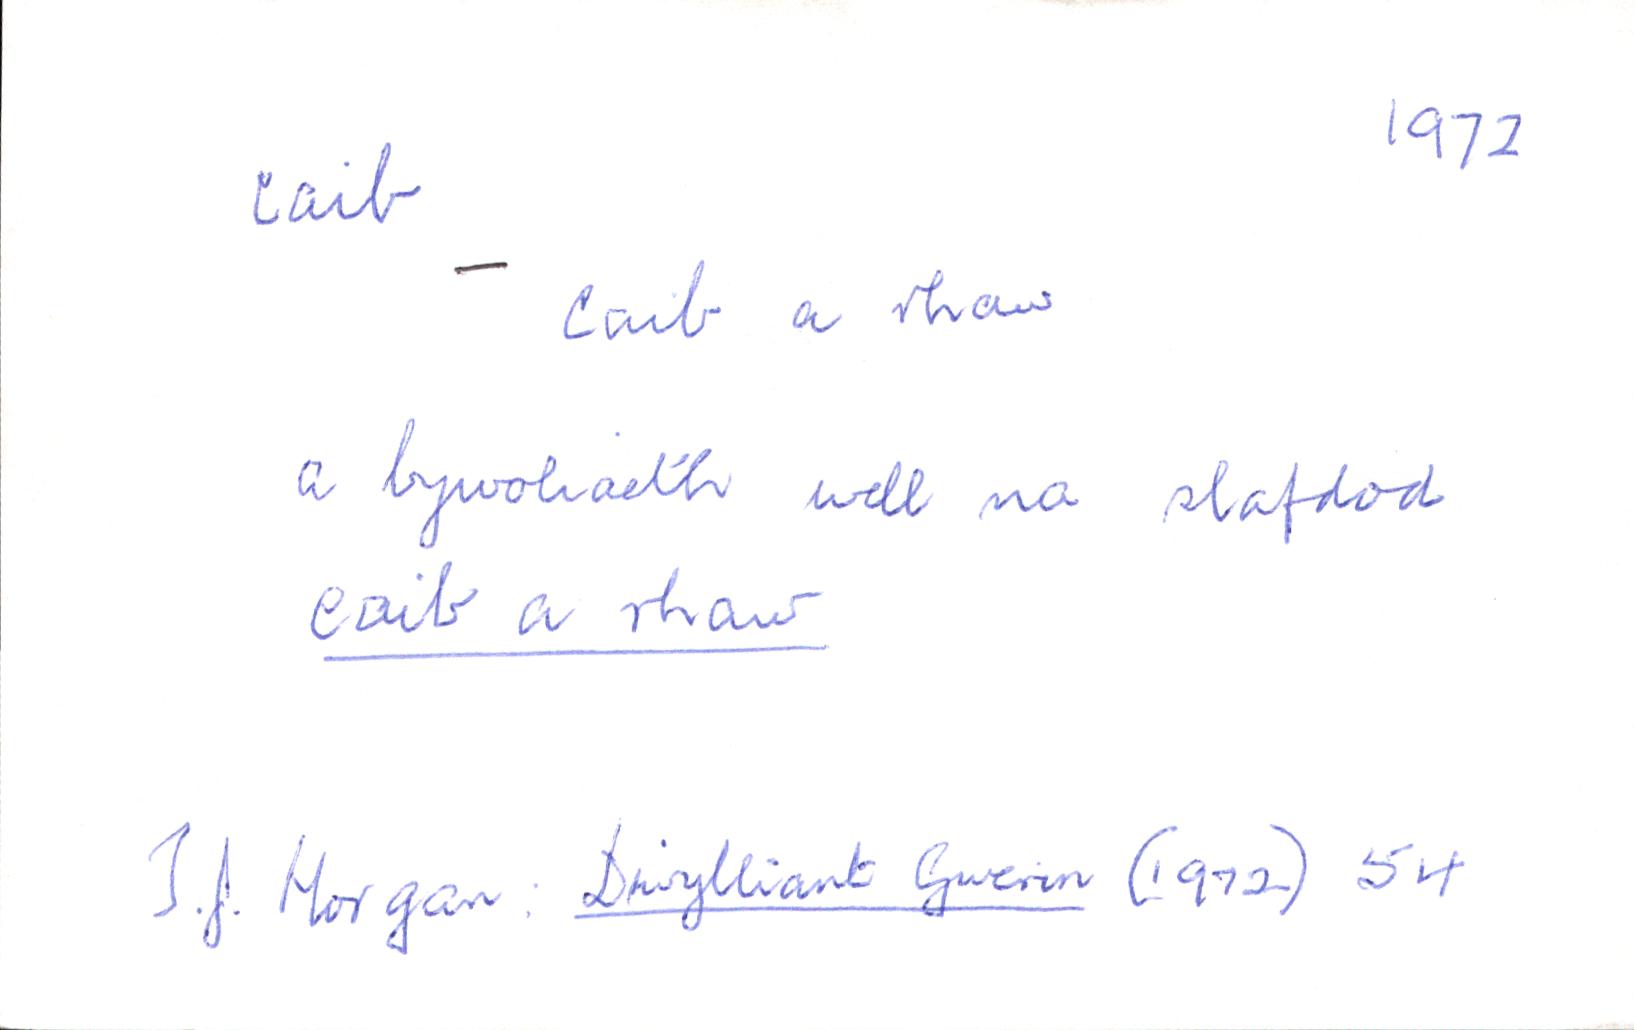 1972
caib
—
caib a rhaw
a bywoliaeth well na slafdod
caib a rhaw
T.J. Morgan: Diwylliant Gwerin (1972) 54